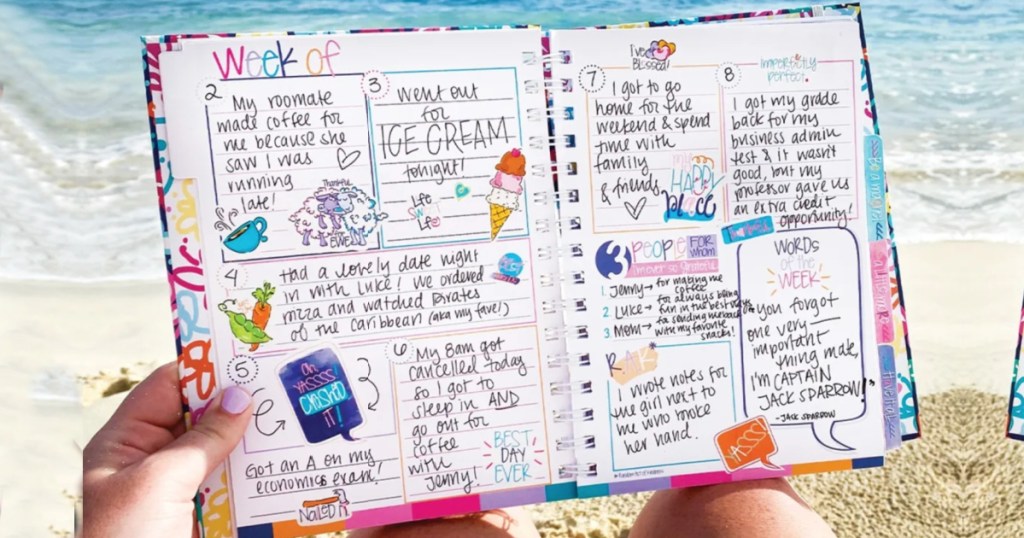 Week of
2
My roommate
made coffee for
me because she
saw I was
running
late!
Thankful
for
EWE
3
Went out
for
ICE CREAM
tonight!
Life
is
sweet
4
Had a lovely date night
in with Luke! We ordered
pizza and watched Pirates
of the Caribbean (aka my fave!)
5
Oh
YASSSS
CRUSHED
IT!
Got an A on my
economics exam!
Nailed it
6
My 8am got
cancelled today
so I got to
sleep in AND
go out for
coffee
with
Jenny!
BEST
DAY
EVER
7
I've
Blessed!
I got to go
home for the
weekend & spend
time with
family
& friends
my
HAPPY
place
8
imperfectly
perfect.
I got my grade
back for my
business admin
test & it wasn't
good, but my
professor gave us
an extra credit
opportunity!
3 PEOPLE FOR whom
I'm ever so grateful
1. Jenny → for making me
coffee
2. Luke → for always being
fun in the best ways
3. Mom → for sending me back
with my favorite
snacks!
R.A.K.
I wrote notes for
the girl next to
me who broke
her hand.
YASSS!
WORDS
of the
WEEK
"You forgot
one very
important
thing mate,
I'm CAPTAIN
JACK SPARROW!"
- JACK SPARROW